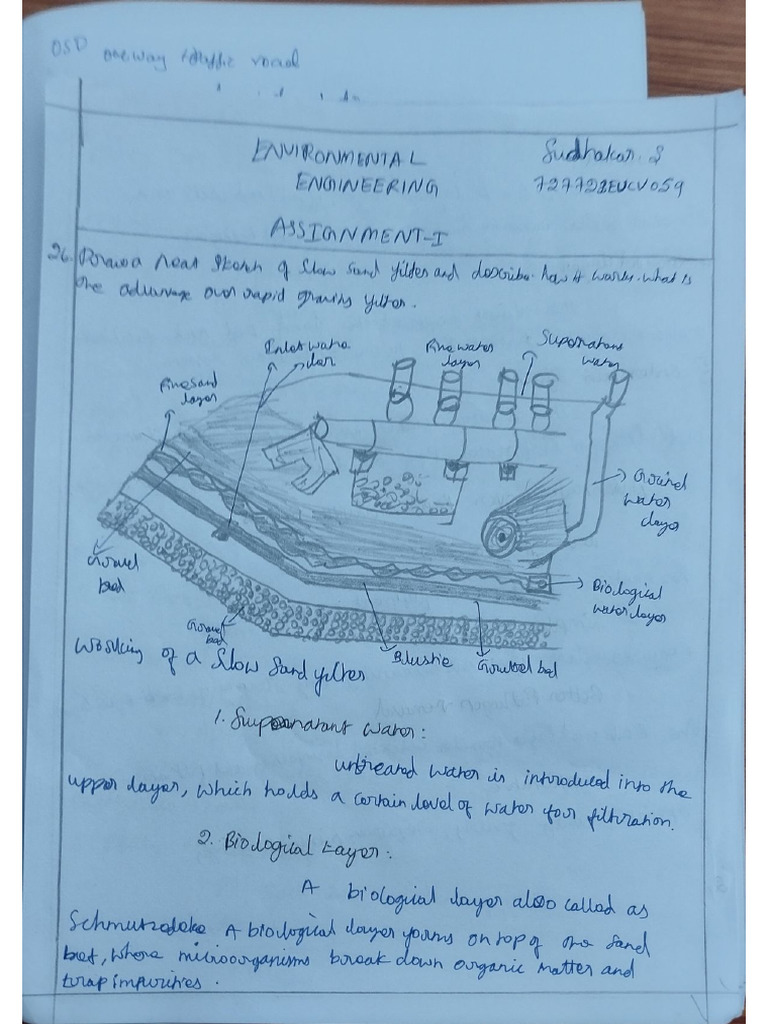 OSD oneway traffic road
ENVIRONMENTAL
ENGINEERING
Sudhakar. S
727723EUCV059
ASSIGNMENT-I
26. Draw a neat sketch of slow sand filter and describe how it works. what is
the advantage over rapid gravity filter.
Inlet water
Fine sand
layer
Fine water
layer
Supernatant
water
Ground
water
layer
Biological
water layer
Gravel
bed
Gravel
bed
Working of a Slow Sand filter
1. Supernatant Water:
untreated water is introduced into the
upper layer, which holds a certain level of water for filtration.
2. Biological Layer:
A biological layer also called as
Schmutzdeke A biological layer forms on top of the sand
bed, where microorganisms break down organic matter and
trap impurities.